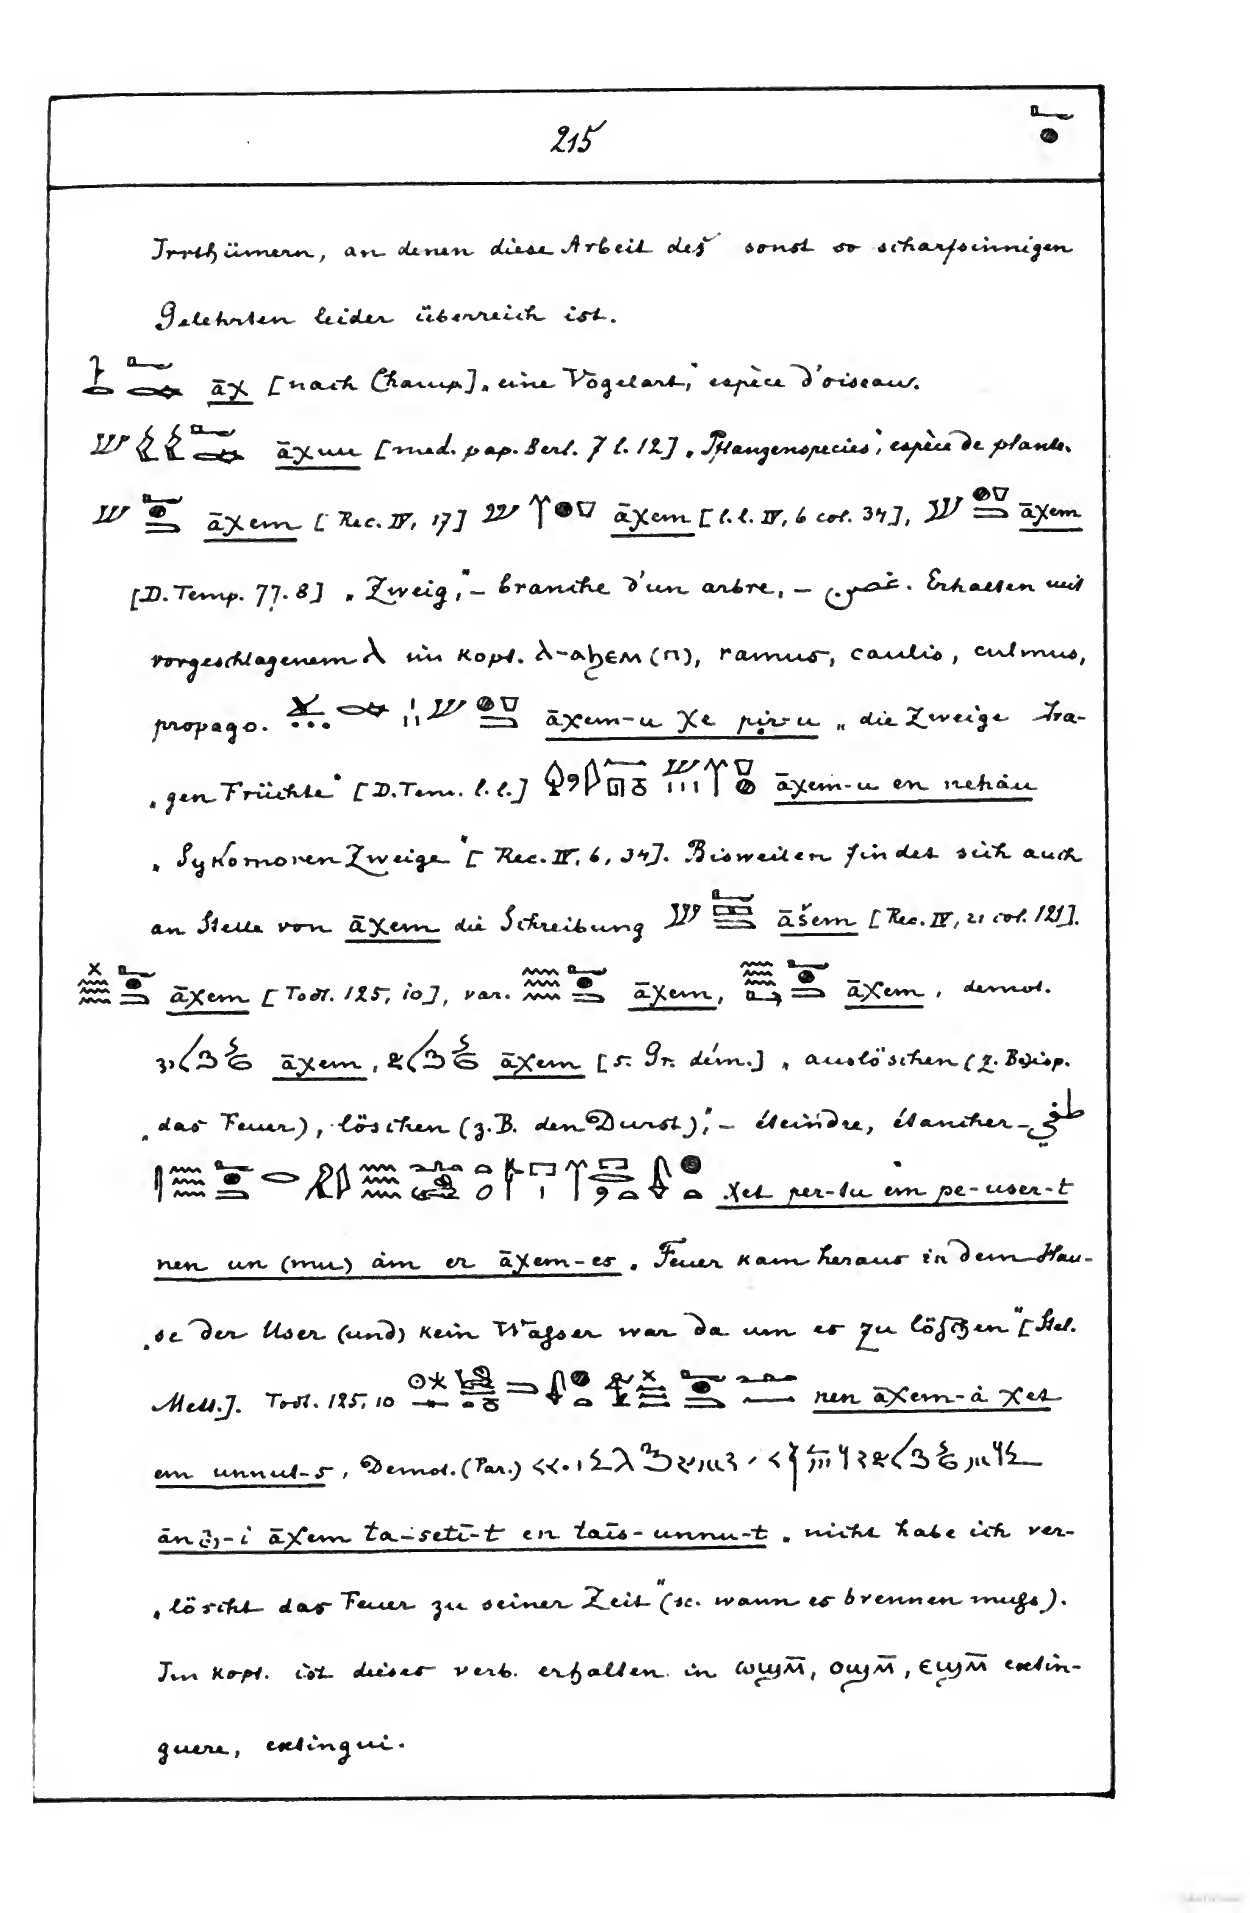 215
Irrthümern, an denen diese Arbeit des sonst so scharfsinnigen
Gelehrten leider überreich ist.
āχ [nach Champ.] „eine Vogelart,“ espèce d'oiseau.
āχuu [med. pap. Berl. 7 l. 12] „Pflanzenspecies“, espèce de plante.
āχem [Rec. IV, 17] āχem [l. l. IV, 6 col. 34], āχem
[D. Temp. 77. 8] „Zweig,“ – branche d'un arbre, – غصن. Erhalten mit
vorgeschlagenem λ im kopt. λ-ⲁϧⲉⲙ (ⲡ), ramus, caulis, culmus,
propago. āχem-u χe pir-u „die Zweige tra-
„gen Früchte“ [D. Tem. l. l.] āχem-u en nehàu
„Sykomoren Zweige“ [Rec. IV, 6, 34]. Bisweilen findet sich auch
an Stelle von āχem die Schreibung āšem [Rec. IV, 21 col. 121].
āχem [Todt. 125, 10], var. āχem, āχem, demot.
āχem, āχem [s. Gr. dém.] „auslöschen (z. Beisp.
„das Feuer), löschen (z. B. den Durst),“ – éteindre, étancher – طفي
χet per-tu em pe-user-t
nen un (mu) àm er āχem-es „Feuer kam heraus in dem Hau-
„se der User (und) kein Waßer war da um es zu löschen“ [Stel.
Mett.]. Todt. 125, 10 nen āχem-à χet
em unnut-s, Demot. (Par.)
ān -i āχem ta-seti-t en tais-unnu-t „nicht habe ich ver-
„löscht das Feuer zu seiner Zeit“ (sc. wann es brennen muß).
Im kopt. ist dieses verb. erhalten in ⲱϣⲙ̄, ⲟϣⲙ̄, ⲉϣⲙ̄ extin-
guere, extingui.